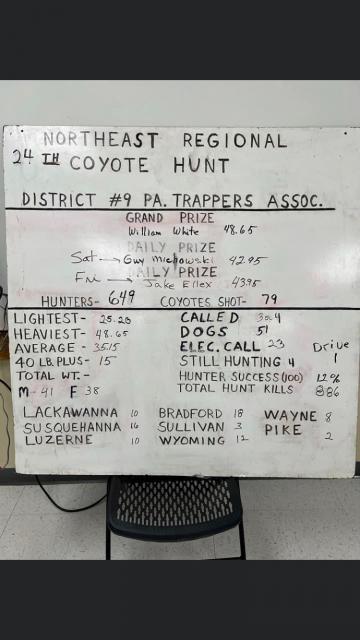 NORTHEAST REGIONAL
24TH COYOTE HUNT
DISTRICT #9 PA. TRAPPERS ASSOC.
GRAND PRIZE
William White 48.65
DAILY PRIZE
Sat → Guy Michowski 42.95
DAILY PRIZE
Fri → Jake Ellex 43.95
HUNTERS- 649 COYOTES SHOT- 79
LIGHTEST- 25.20
HEAVIEST- 48.65
AVERAGE- 35.15
40 LB. PLUS- 15
TOTAL WT.-
M-41 F 38
CALLED
DOGS 51
ELEC. CALL 23
Drive
1
STILL HUNTING 4
HUNTER SUCCESS(100) 12%
TOTAL HUNT KILLS 886
LACKAWANNA 10 BRADFORD 18 WAYNE 8
SUSQUEHANNA 16 SULLIVAN 3 PIKE 2
LUZERNE 10 WYOMING 12